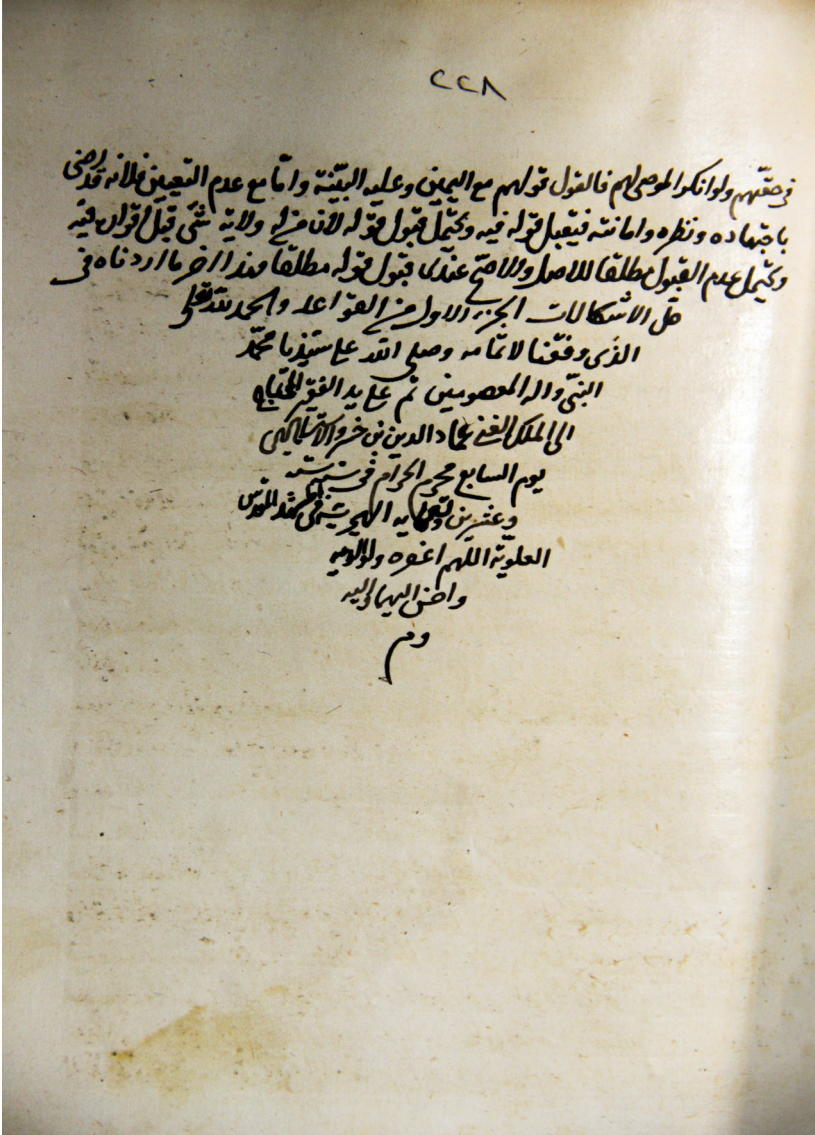 ٢٢٨
في حقهم ولو انكر الموصى لهم فالقول قولهم مع اليمين وعليه البيّنة وامّا مع عدم التعيين فلانه قد رضى
باجتهاده ونظره وامانته فيقبل قوله فيه ويحتمل قبول قوله لان من له ولاية شئ قبل اقراره فيه
ويحتمل عدم القبول مطلقا للاصل والاصح عندى قبول قوله مطلقا فهذا اخر ما اردناه فى
حلّ الاشكالات الجزء الاول من القواعد والحمد لله تعالى
الذى وفقنا لاتمامه وصلى الله على سيّدنا محمّد
النبىّ واله المعصومين تم على يد الفقير المحتاج
الى الملك الغنى عماد الدين بن خسرو
يوم السابع محرم الحرام فى سنة
وعشرين وتسعمايه الهجرية فى المشهد المقدس
العلويّة اللهم اغفره ولوالديه
واحسن اليهما واليه